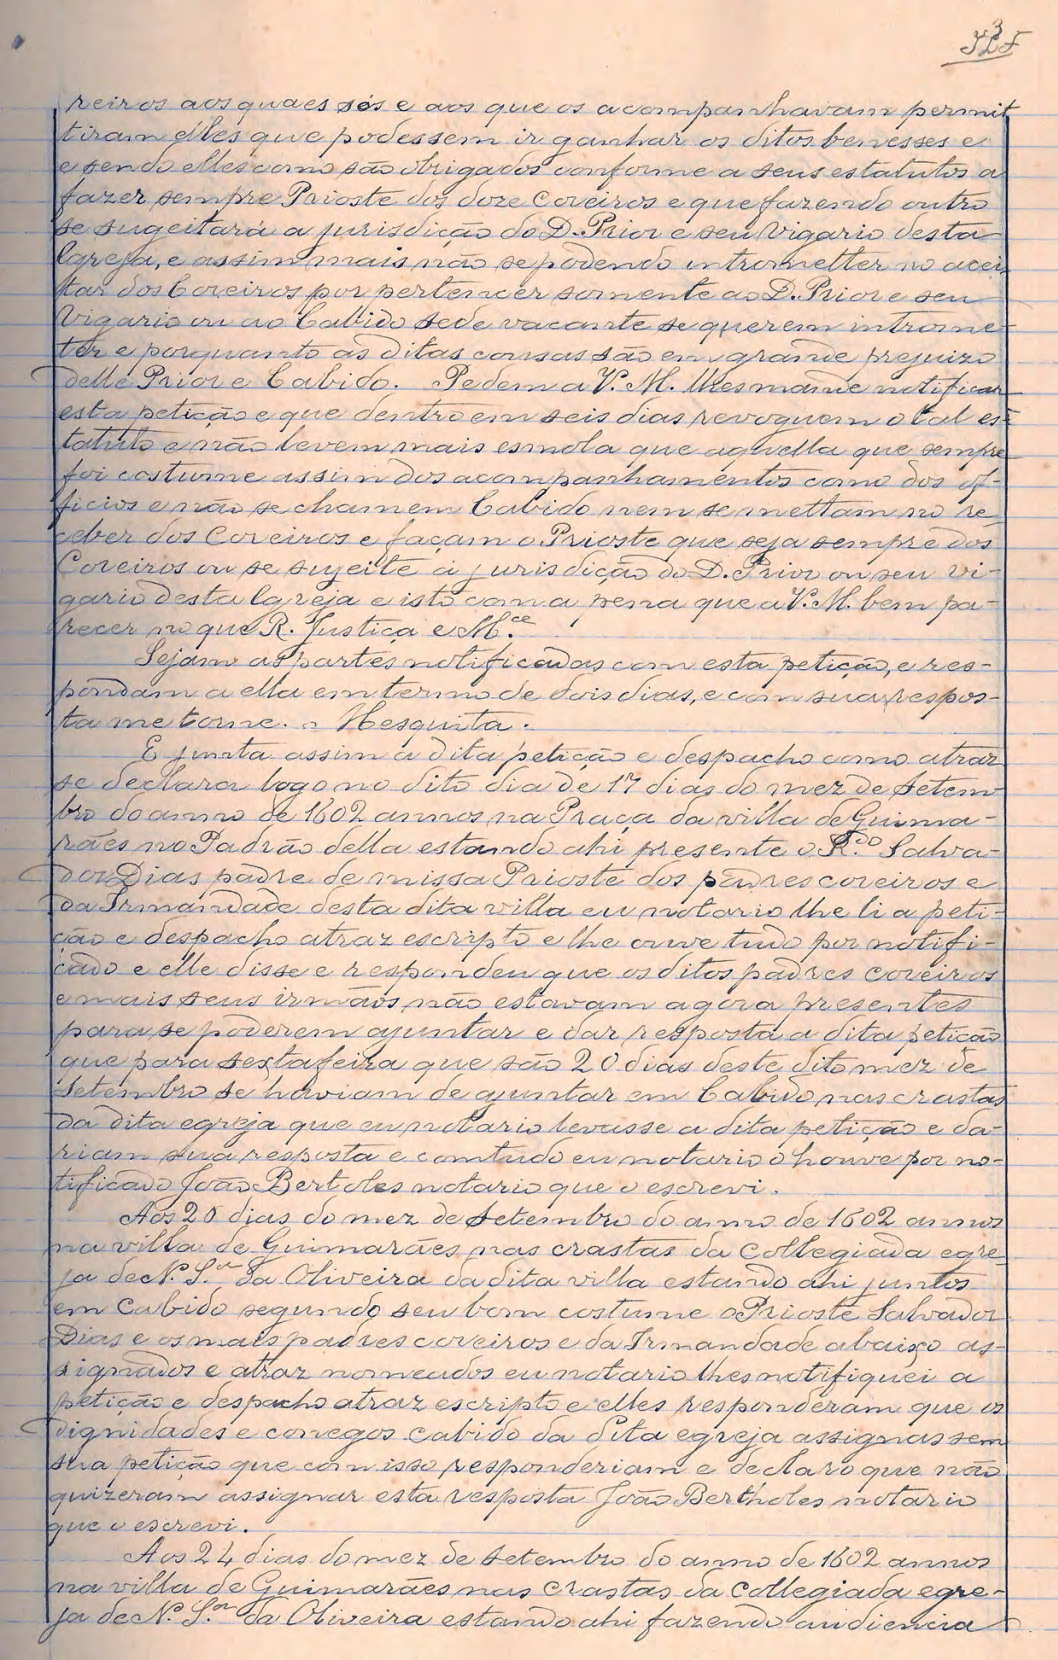 3
reiros aos quaes sós e aos que os acompanhavam permit
tiram elles que podessem ir ganhar os ditos benesses e
e sendo elles como são obrigados conforme a seus estatutos a
fazer sempre Prioste dos doze Coreiros e que fazendo outro
se sugeitará a jurisdição do D. Prior e seu Vigario desta
Igreja, e assim mais não se podendo intrometter no acei
tar dos Coreiros por pertencer somente ao D. Prior e seu
Vigario ou ao Cabido sede vacante se querem introme-
ter e porquanto as ditas cousas são em grande prejuizo
delle Prior e Cabido. Pedem a V. M. lhes mande notificar
esta petição e que dentro em seis dias revoguem o tal es-
tatuto e não levem mais esmola que aquella que sempre
foi costume assim dos acompanhamentos como dos of-
ficios e não se chamem Cabido nem se mettam no re-
ceber dos Coreiros e façam o Prioste que seja sempre dos
Coreiros ou se sujeite á jurisdição do D. Prior ou seu vi-
gario desta Igreja e isto com a pena que a V. M. bem pa-
recer no que R. Justiça e M.ce
Sejam as partes notificadas com esta petição, e res-
pondam a ella em termo de dois dias, e com sua respos-
ta me torne. = Mesquita.
E junta assim a dita petição e despacho como atraz
se declara logo no dito dia de 17 dias do mez de Setem-
bro do anno de 1602 annos na Praça da villa de Guima-
rães no Padrão della estando ahi presente o R.do Salva-
dor Dias padre de missa Prioste dos padres coreiros e
da Irmandade desta dita villa eu notario lhe li a peti-
ção e despacho atraz escripto e lhe ouve tudo por notifi-
cado e elle disse e respondeu que os ditos padres coreiros
e mais seus irmãos não estavam agora presentes
para se poderem ajuntar e dar resposta a dita petição
que para sexta feira que são 20 dias deste dito mez de
Setembro se haviam de ajuntar em Cabido nas crastas
da dita egreja que eu notario levasse a dita petição e da-
riam sua resposta e comtudo eu notario o houve por no-
tificado João Bertoles notario que o escrevi.
Aos 20 dias do mez de Setembro do anno de 1602 annos
na villa de Guimarães nas crastas da Collegiada egre-
ja de N. S.ra da Oliveira da dita villa estando ahi juntos
em Cabido segundo seu bom costume o Prioste Salvador
Dias e os mais padres coreiros e da Irmandade abaixo as-
signados e atraz nomeados eu notario lhes notifiquei a
petição e despacho atraz escripto e elles responderam que os
dignidades e conegos cabido da dita egreja assignassem
sua petição que com isso responderiam e declaro que não
quizeram assignar esta resposta João Bertholes notario
que o escrevi.
Aos 24 dias do mez de Setembro do anno de 1602 annos
na villa de Guimarães nas Crastas da Collegiada egre-
ja de N. S.ra da Oliveira estando ahi fazendo audiencia